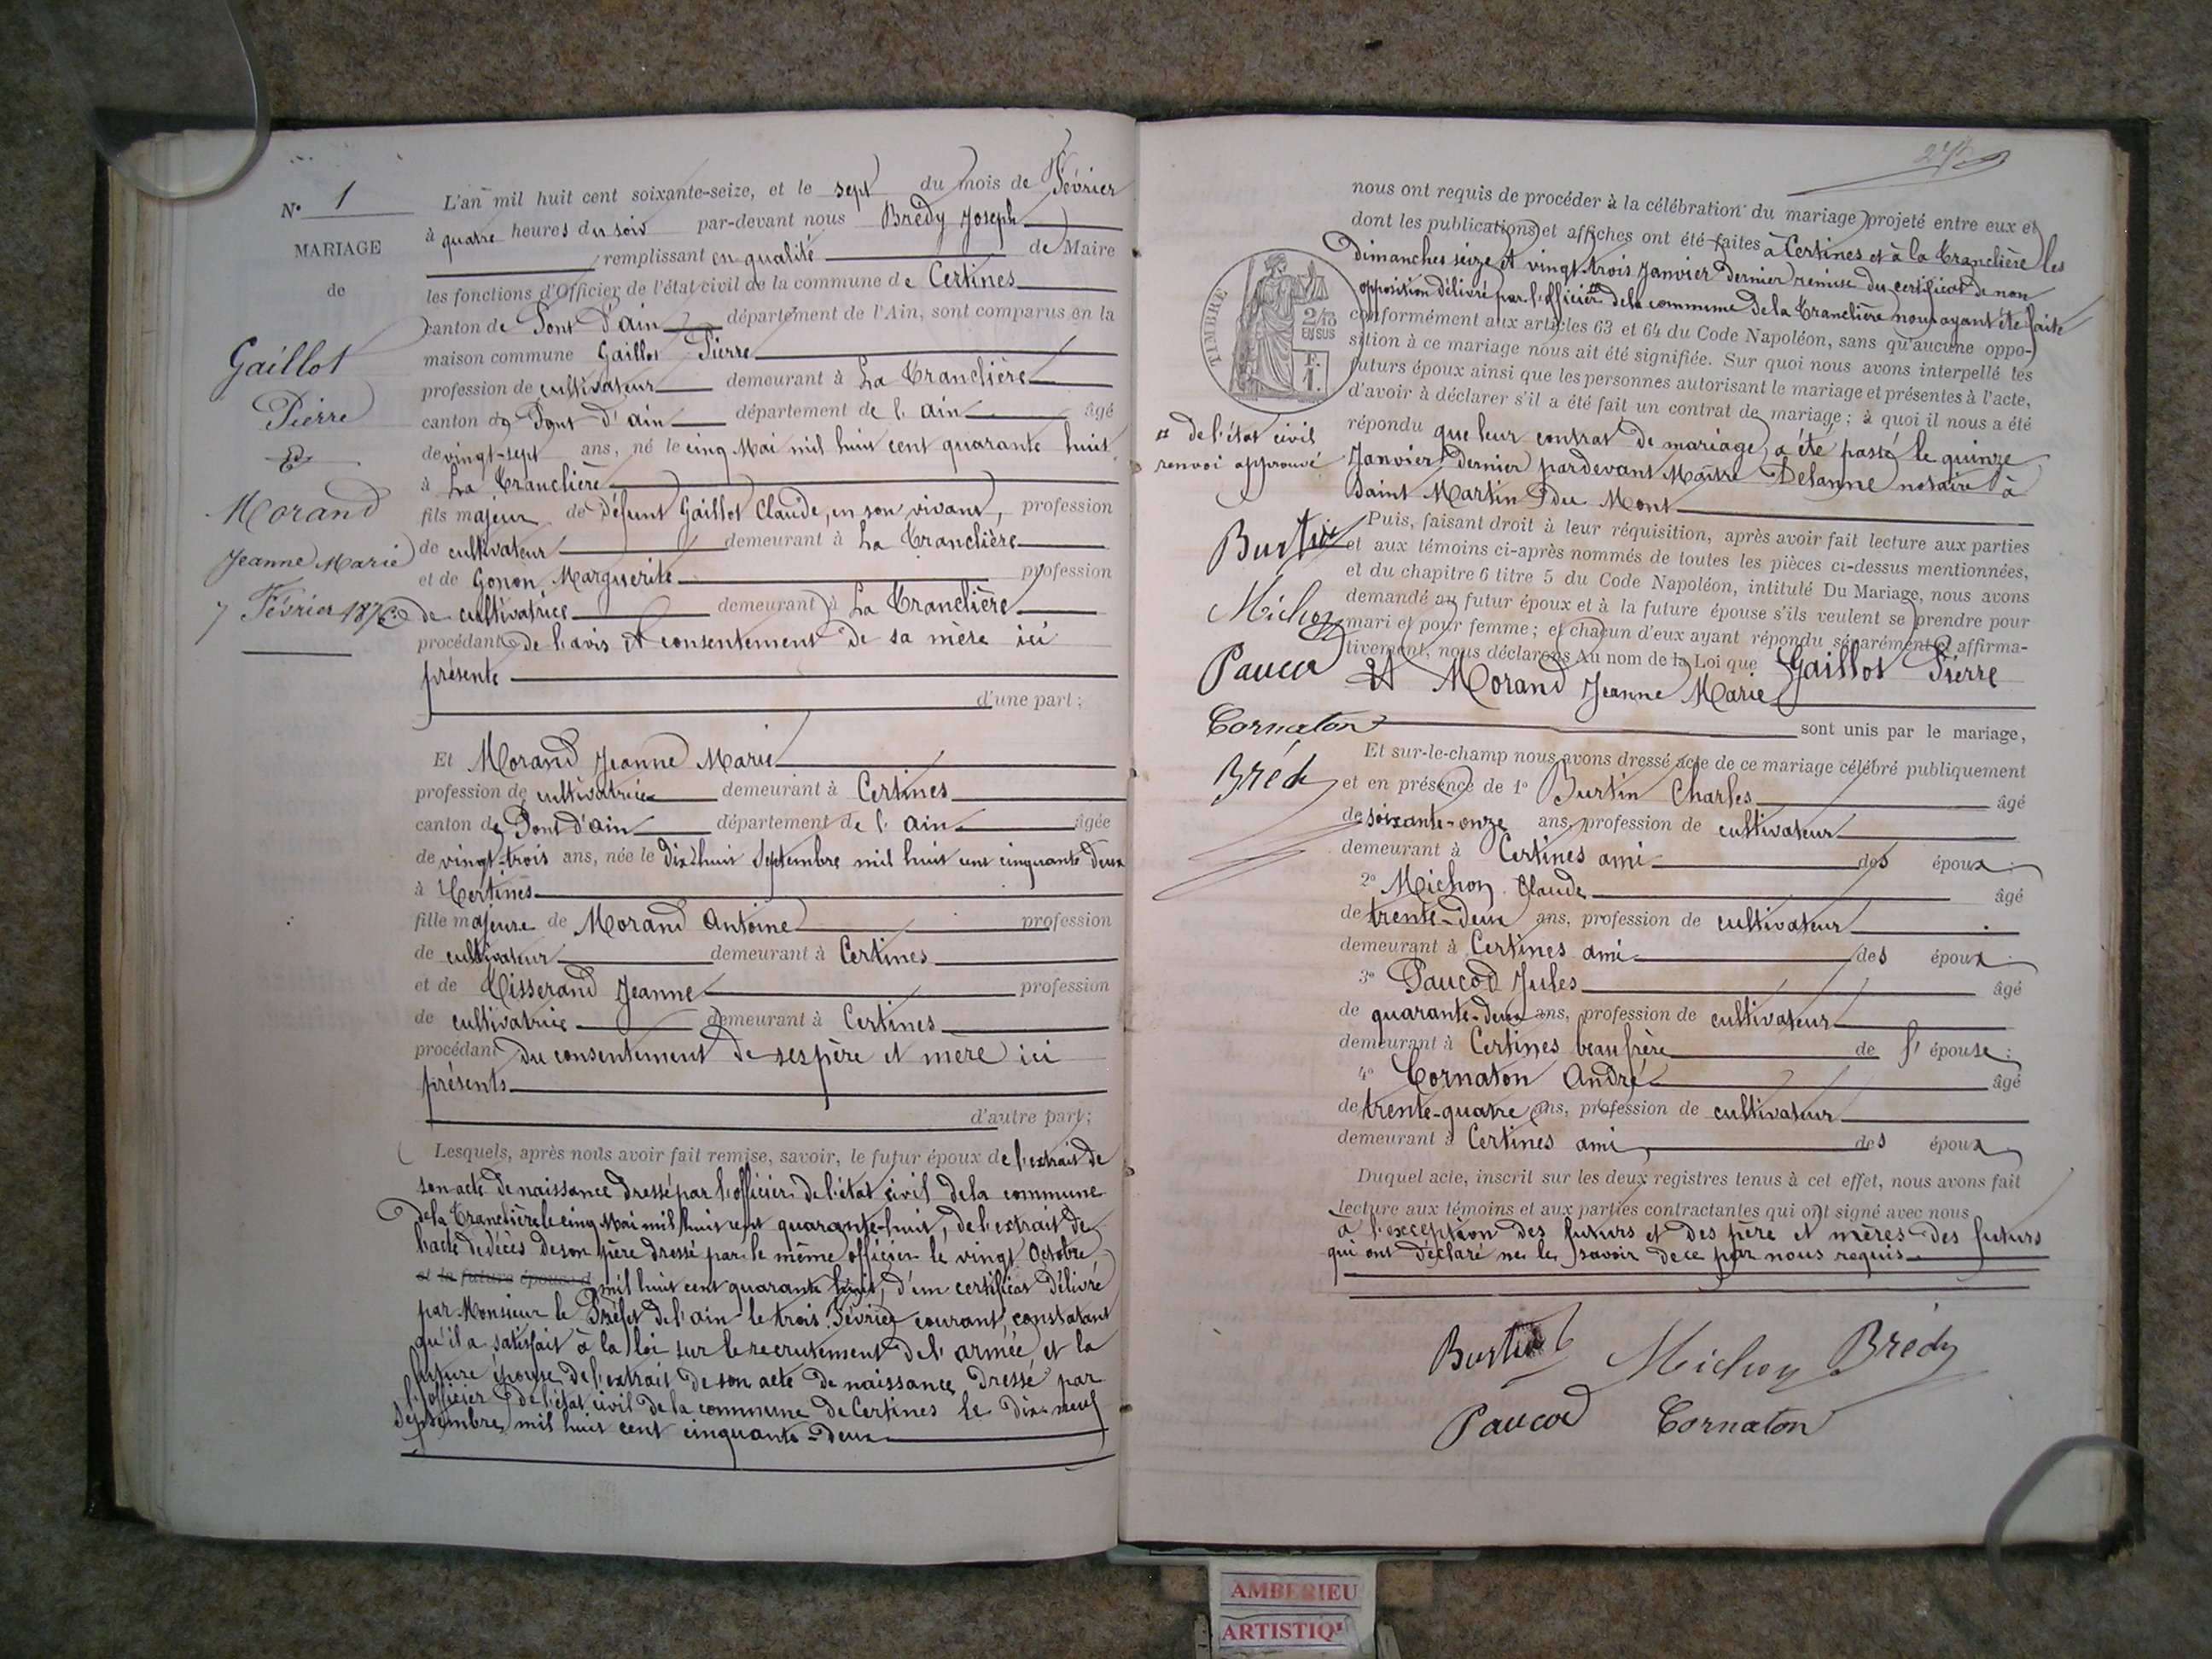 N° 1
MARIAGE
de
Gaillot
Pierre
&
Morand
Jeanne Marie
7 Février 1876
L'an mil huit cent soixante-seize, et le sept du mois de Février
à quatre heures du soir par-devant nous Brédy Joseph
remplissant en qualité de Maire
les fonctions d'Officier de l'état civil de la commune de Certines
canton de Pont d'ain département de l'Ain, sont comparus en la
maison commune Gaillot Pierre
profession de cultivateur demeurant à La Tranclière
canton de Pont d'ain département de l'ain âgé
de vingt-sept ans, né le cinq Mai mil huit cent quarante huit
à La Tranclière
fils majeur de Défunt Gaillot Claude, en son vivant, profession
de cultivateur demeurant à La Tranclière
et de Gonon Marguerite profession
de cultivatrice demeurant à La Tranclière
procédant de l'avis et consentement de sa mère ici
présente
d'une part;
Et Morand Jeanne Marie
profession de cultivatrice demeurant à Certines
canton de Pont d'ain département de l'ain âgée
de vingt-trois ans, née le Dix huit Septembre mil huit cent cinquante deux
à Certines
fille majeure de Morand Antoine profession
de cultivateur demeurant à Certines
et de Tisserand Jeanne profession
de cultivatrice demeurant à Certines
procédant du consentement de ses père et mère ici
présents
d'autre part;
Lesquels, après nous avoir fait remise, savoir, le futur époux de l'extrait de
son acte de naissance dressé par l'officier de l'état civil de la commune
de la Tranclière le cinq Mai mil huit cent quarante-huit, de l'extrait de
l'acte de décès de son père dressé par le même officier le vingt Octobre
et la future épouse d mil huit cent quarante huit, d'un certificat délivré
par Monsieur le Préfet de l'ain le trois Février courant, constatant
qu'il a satisfait à la loi sur le recrutement de l'armée, et la
future épouse de l'extrait de son acte de naissance dressé par
l'officier de l'état civil de la commune de Certines le dix-neuf
Septembre mil huit cent cinquante-deux
nous ont requis de procéder à la célébration du mariage projeté entre eux et
dont les publications et affiches ont été faites à Certines et à la Tranclière les
Dimanches seize et vingt-trois Janvier dernier remise du certificat de non
opposition délivré par l'officier de la commune de la Tranclière nous ayant été faite
conformément aux articles 63 et 64 du Code Napoléon, sans qu'aucune oppo-
sition à ce mariage nous ait été signifiée. Sur quoi nous avons interpellé les
futurs époux ainsi que les personnes autorisant le mariage et présentes à l'acte,
d'avoir à déclarer s'il a été fait un contrat de mariage; à quoi il nous a été
répondu que leur contrat de mariage a été passé le quinze
Janvier dernier pardevant Maître Delanne notaire à
Saint Martin du Mont
TIMBRE
2/10
EN SUS
F.
1.
de l'état civil
renvoi approuvé
Burtin
Michon
Paucod
Cornaton
Brédy
Puis, faisant droit à leur réquisition, après avoir fait lecture aux parties
et aux témoins ci-après nommés de toutes les pièces ci-dessus mentionnées,
et du chapitre 6 titre 5 du Code Napoléon, intitulé Du Mariage, nous avons
demandé au futur époux et à la future épouse s'ils veulent se prendre pour
mari et pour femme; et chacun d'eux ayant répondu séparément et affirma-
tivement, nous déclarons Au nom de la Loi que Gaillot Pierre
Et Morand Jeanne Marie
sont unis par le mariage,
Et sur-le-champ nous avons dressé acte de ce mariage célébré publiquement
et en présence de 1° Burtin Charles âgé
de soixante-onze ans, profession de cultivateur
demeurant à Certines ami des époux
2° Michon Claude âgé
de trente-deux ans, profession de cultivateur
demeurant à Certines ami des époux
3° Paucod Jules âgé
de quarante-deux ans, profession de cultivateur
demeurant à Certines beau frère de l'épouse;
4° Cornaton André âgé
de trente-quatre ans, profession de cultivateur
demeurant à Certines ami des époux
Duquel acte, inscrit sur les deux registres tenus à cet effet, nous avons fait
lecture aux témoins et aux parties contractantes qui ont signé avec nous
à l'exception des futurs et des père et mères des futurs
qui ont déclaré ne le savoir de ce par nous requis
Burtin Michon Brédy
Paucod Cornaton
AMBERIEU
ARTISTIQ